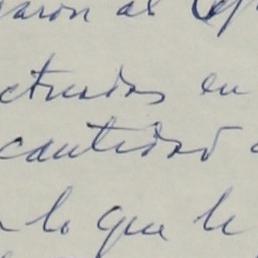 aron al
ctuadas en
cantidad
lo que le